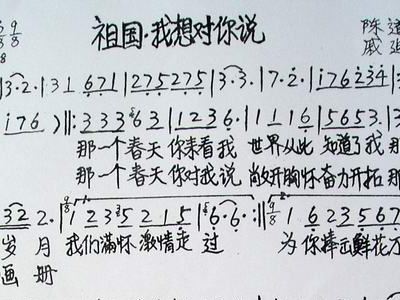 祖国·我想对你说
9/8
陈
戚
|3·2·|3 1 671|275275|3·3·|7·2·|i76234|3
i76)‖:333563|1236·|1116|5653.3
那一个春天你来看我 世界从此 知道了我 那
那一个春天你对我说 敞开胸怀奋力开拓 那
32 2·|9/8 1 2 3 5 2 1 5|6·6·:‖9/8 1 6 2 3 5 6 7
岁 月 我们满怀激情走 过 为你捧击鲜花万
画 册